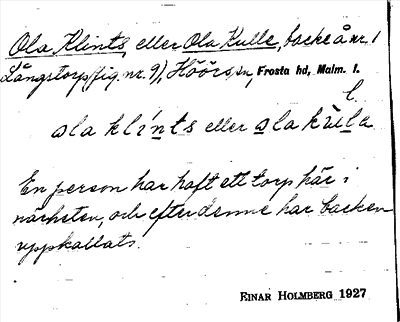 Ola Klints, eller Ola Kulle, backe å nr. 1
Långstorp (fig. nr. 9), Höörs sn, Frosta hd, Malm. l.
ola klints eller ola kulla
En person har haft ett torp här i
närheten, och efter denne har backen
uppkallats.
EINAR HOLMBERG 1927